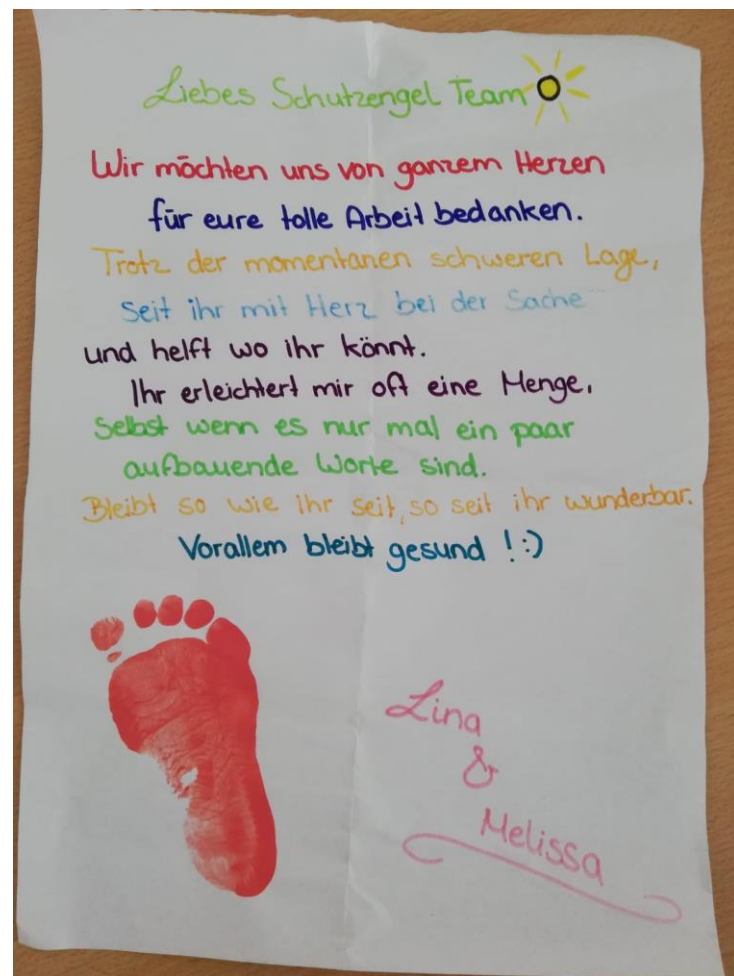 Liebes Schutzengel Team
Wir möchten uns von ganzem Herzen
für eure tolle Arbeit bedanken.
Trotz der momentanen schweren Lage,
seit ihr mit Herz bei der Sache
und helft wo ihr könnt.
Ihr erleichtert mir oft eine Menge,
Selbst wenn es nur mal ein paar
aufbauende Worte sind.
Bleibt so wie ihr seit, so seit ihr wunderbar.
Vorallem bleibt gesund ! :)
Lina
&
Melissa